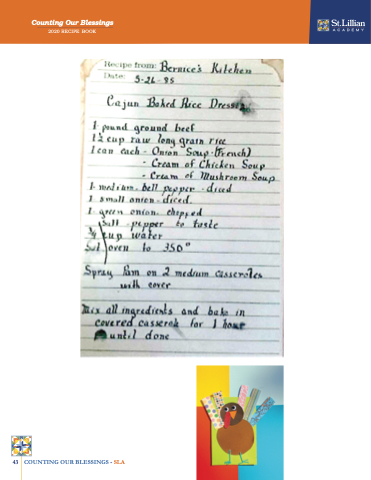 Counting Our Blessings
2020 RECIPE BOOK
St.Lillian
ACADEMY
Recipe from: Bernice's Kitchen
Date: 3-26-95
Cajun Baked Rice Dressing
1 pound ground beef
1½ cup raw long grain rice
1 can each - Onion Soup (French)
- Cream of Chicken Soup
- Cream of Mushroom Soup
1 medium bell pepper - diced
1 small onion - diced
1 green onion, chopped
Salt pepper to taste
¾ cup water
Set oven to 350°
Spray Pam on 2 medium casseroles
with cover
Mix all ingredients and bake in
covered casserole for 1 hour
until done
41 COUNTING OUR BLESSINGS - SLA